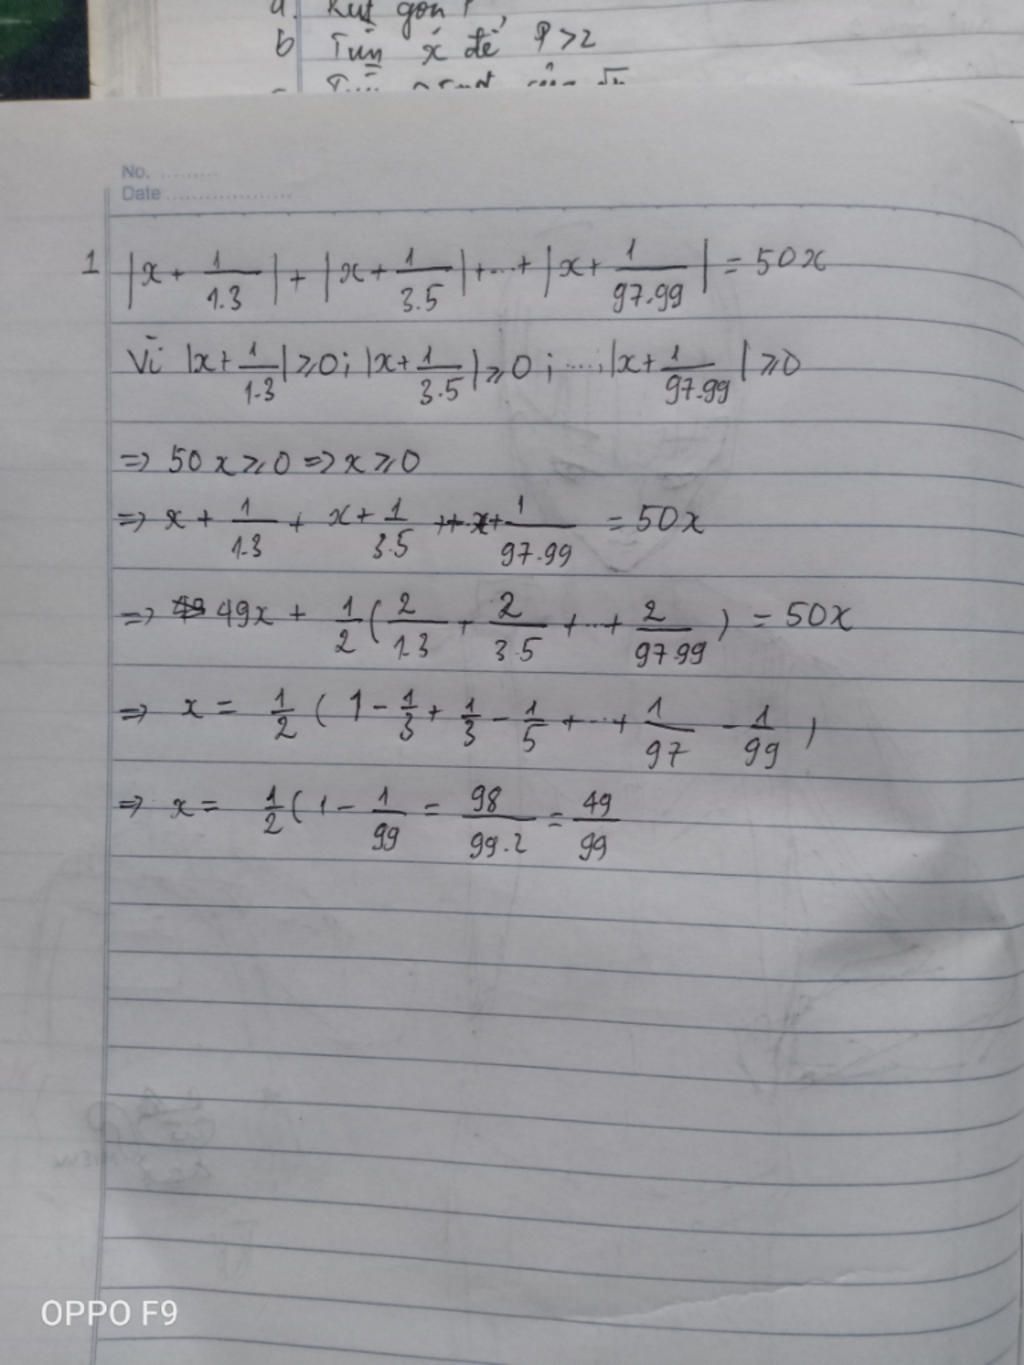 a. Rút gọn P
b Tìm x để P > 2
No. ........
Date ..................
1 |x + 1/1.3| + |x + 1/3.5| + ... + |x + 1/97.99| = 50x
Vì |x + 1/1.3| ⩾ 0; |x + 1/3.5| ⩾ 0; ....; |x + 1/97.99| ⩾ 0
=> 50x ⩾ 0 => x ⩾ 0
=> x + 1/1.3 + x + 1/3.5 + ... + x + 1/97.99 = 50x
=> 49x + 1/2 ( 2/1.3 + 2/3.5 + ... + 2/97.99 ) = 50x
=> x = 1/2 ( 1 - 1/3 + 1/3 - 1/5 + ... + 1/97 - 1/99 )
=> x = 1/2 ( 1 - 1/99 = 98/99.2 = 49/99
OPPO F9